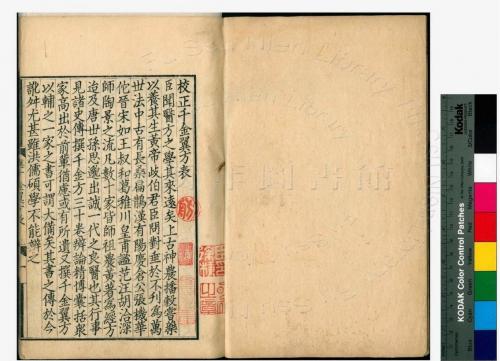 校正千金翼方表
臣聞醫方之學其來遠矣上古神農播穀嘗藥
以養其生黃帝岐伯君臣問對垂於不刊為萬
世法中古有長桑扁鵲漢有陽慶倉公張機華
佗晉宋如王叔和葛稚川皇甫謐范汪胡洽深
師陶景之流凡數十家皆師祖農黃著為經方
迨及唐世孫思邈出誠一代之良醫也其行事
見諸史傳撰千金方三十卷辯論精博囊括衆
家高出於前輩猶慮或有所遺又撰千金翼方
以輔之一家之書可謂大備矣其書之傳於今
訛舛尤甚雖洪儒碩學不能辨之
Kodak
KODAK Color Control Patches
Black
3/Color
White
Magenta
Red
Yellow
Green
Cyan
Blue